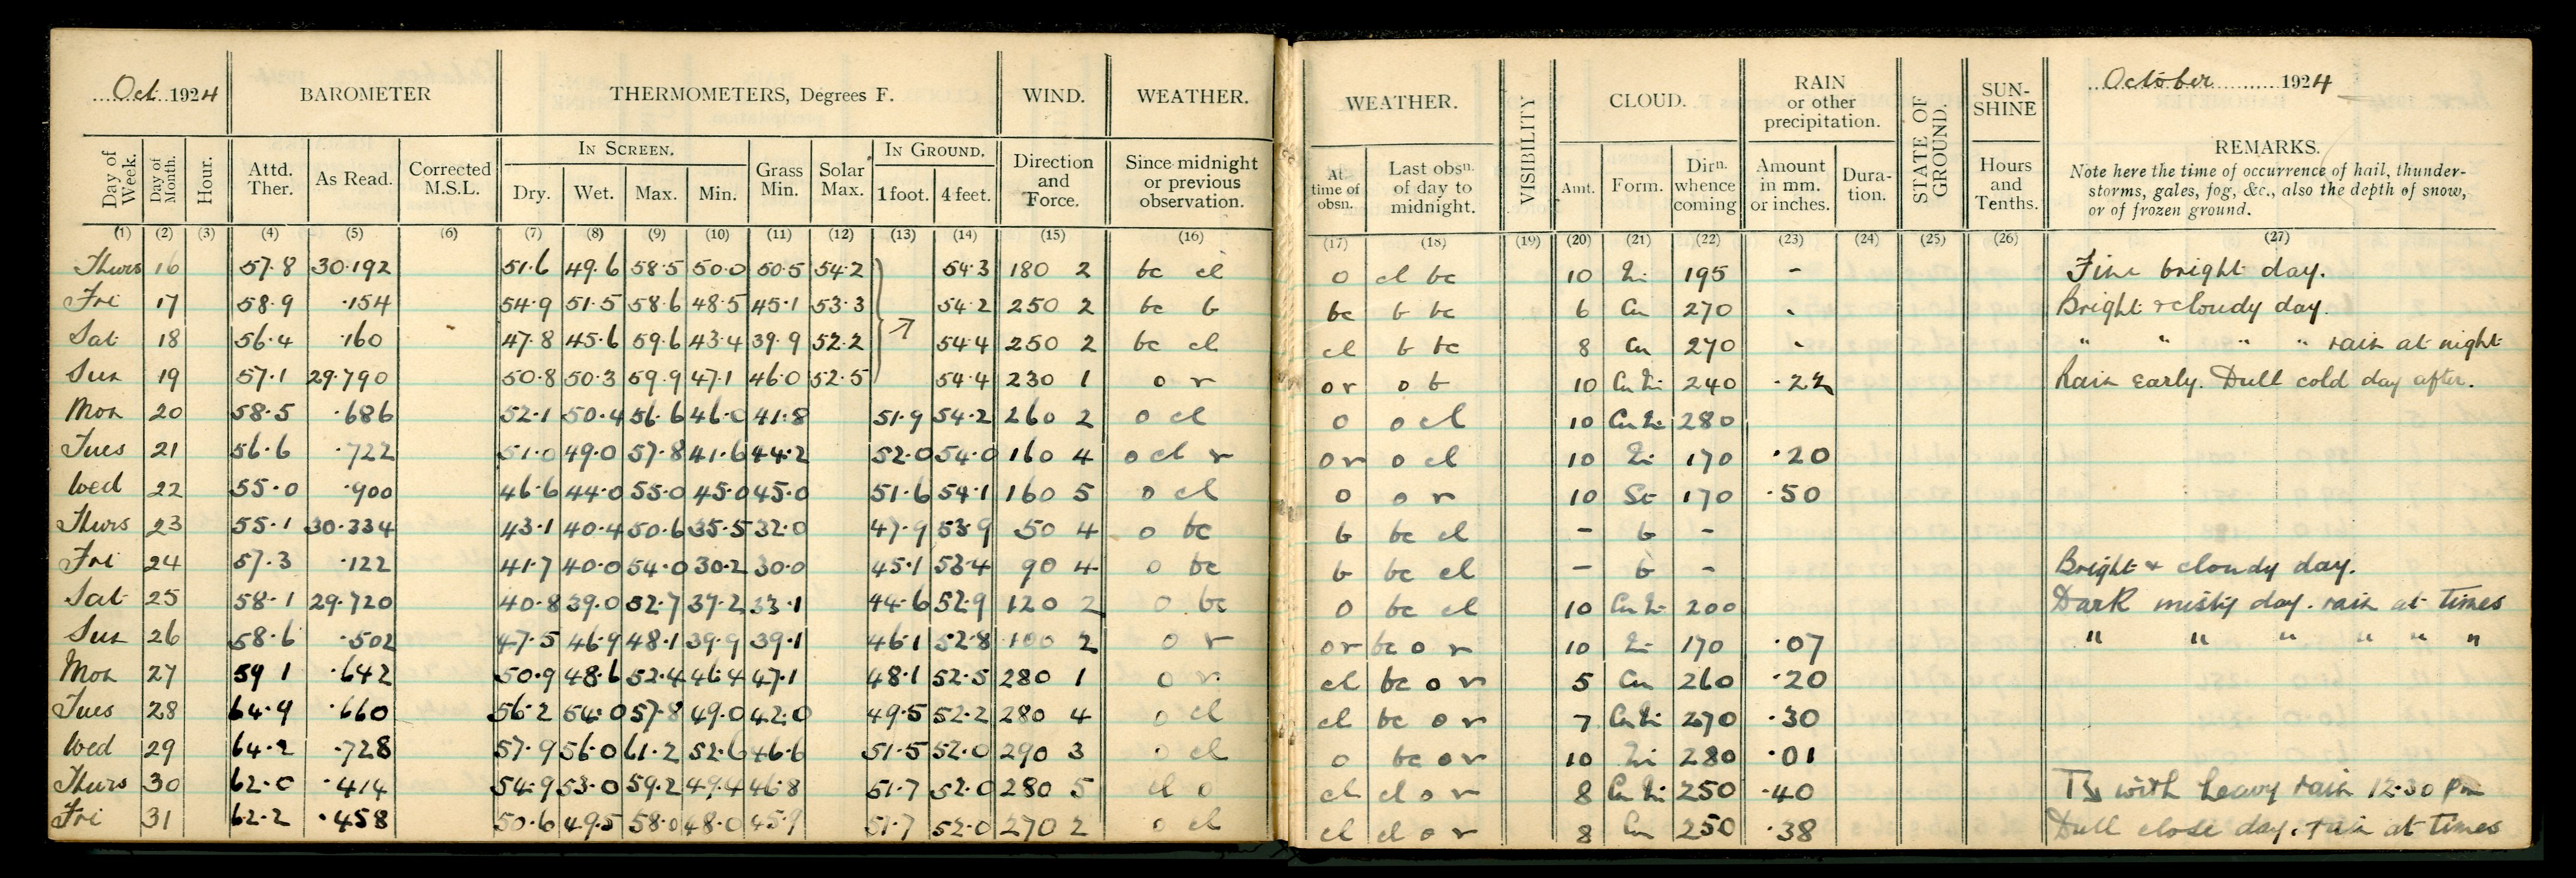 Oct. 1924 BAROMETER THERMOMETERS, Degrees F. WIND. WEATHER. WEATHER. VISIBILITY CLOUD. RAIN or other precipitation. STATE OF GROUND. SUN-SHINE October 1924
Day of Week. Day of Month. Hour. Attd. Ther. As Read. Corrected M.S.L. IN SCREEN. Dry. Wet. Max. Min. Grass Min. Solar Max. IN GROUND. 1 foot. 4 feet. Direction and Force. Since midnight or previous observation. At time of obsn. Last obsn. of day to midnight. Amt. Form. Dirn. whence coming Amount in mm. or inches. Dura-tion. Hours and Tenths. REMARKS.
Note here the time of occurrence of hail, thunder-
storms, gales, fog, &c., also the depth of snow,
or of frozen ground.
(1) (2) (3) (4) (5) (6) (7) (8) (9) (10) (11) (12) (13) (14) (15) (16) (17) (18) (19) (20) (21) (22) (23) (24) (25) (26) (27)
Thurs 16 57.8 30.192 51.6 49.6 58.5 50.0 50.5 54.2 54.3 180 2 bc cl o cl bc 10 Ni 195 - Fine bright day.
Fri 17 58.9 .154 54.9 51.5 58.6 48.5 45.1 53.3 54.2 250 2 bc b bc b bc 6 Cu 270 - Bright & cloudy day.
Sat 18 56.4 .160 47.8 45.6 59.6 43.4 39.9 52.2 54.4 250 2 bc cl cl b bc 8 Cu 270 - " " " " rain at night
Sun 19 57.1 29.790 50.8 50.3 59.9 47.1 46.0 52.5 54.4 230 1 o r or o b 10 Cu Ni 240 .22 Rain early. Dull cold day after.
Mon 20 58.5 .686 52.1 50.4 56.6 46.0 41.8 51.9 54.2 260 2 o cl o o cl 10 Cu Ni 280
Tues 21 56.6 .722 51.0 49.0 57.8 41.6 44.2 52.0 54.0 160 4 o cl r or o cl 10 Ni 170 .20
Wed 22 55.0 .900 46.6 44.0 55.0 45.0 45.0 51.6 54.1 160 5 o cl o o r 10 St 170 .50
Thurs 23 55.1 30.334 43.1 40.4 50.6 35.5 32.0 47.9 53.9 50 4 o bc b bc cl - b -
Fri 24 57.3 .122 41.7 40.0 54.0 30.2 30.0 45.1 53.4 90 4 o bc b bc cl - b - Bright & cloudy day.
Sat 25 58.1 29.720 40.8 39.0 52.7 37.2 33.1 44.6 52.9 120 2 o bc o bc cl 10 Cu Ni 200 Dark misty day. rain at times
Sun 26 58.6 .502 47.5 46.9 48.1 39.9 39.1 46.1 52.8 100 2 o r or bc o r 10 Ni 170 .07 " " " " " "
Mon 27 59 1 .642 50.9 48.6 52.4 46.4 47.1 48.1 52.5 280 1 o r cl bc o r 5 Cu 260 .20
Tues 28 64.9 .660 56.2 54.0 57.8 49.0 42.0 49.5 52.2 280 4 o cl cl bc o r 7 Cu Ni 270 .30
Wed 29 64.2 .728 57.9 56.0 61.2 52.6 46.6 51.5 52.0 290 3 o cl o bc o r 10 Ni 280 .01
Thurs 30 62.0 .414 54.9 53.0 59.2 49.4 46.8 51.7 52.0 280 5 cl o cl cl o r 8 Cu Ni 250 .40 with heavy rain 12.30 pm
Fri 31 62.2 .458 50.6 49.5 58.0 48.0 45.9 51.7 52.0 270 2 o cl cl cl o r 8 Cu 250 .38 Dull close day. rain at times